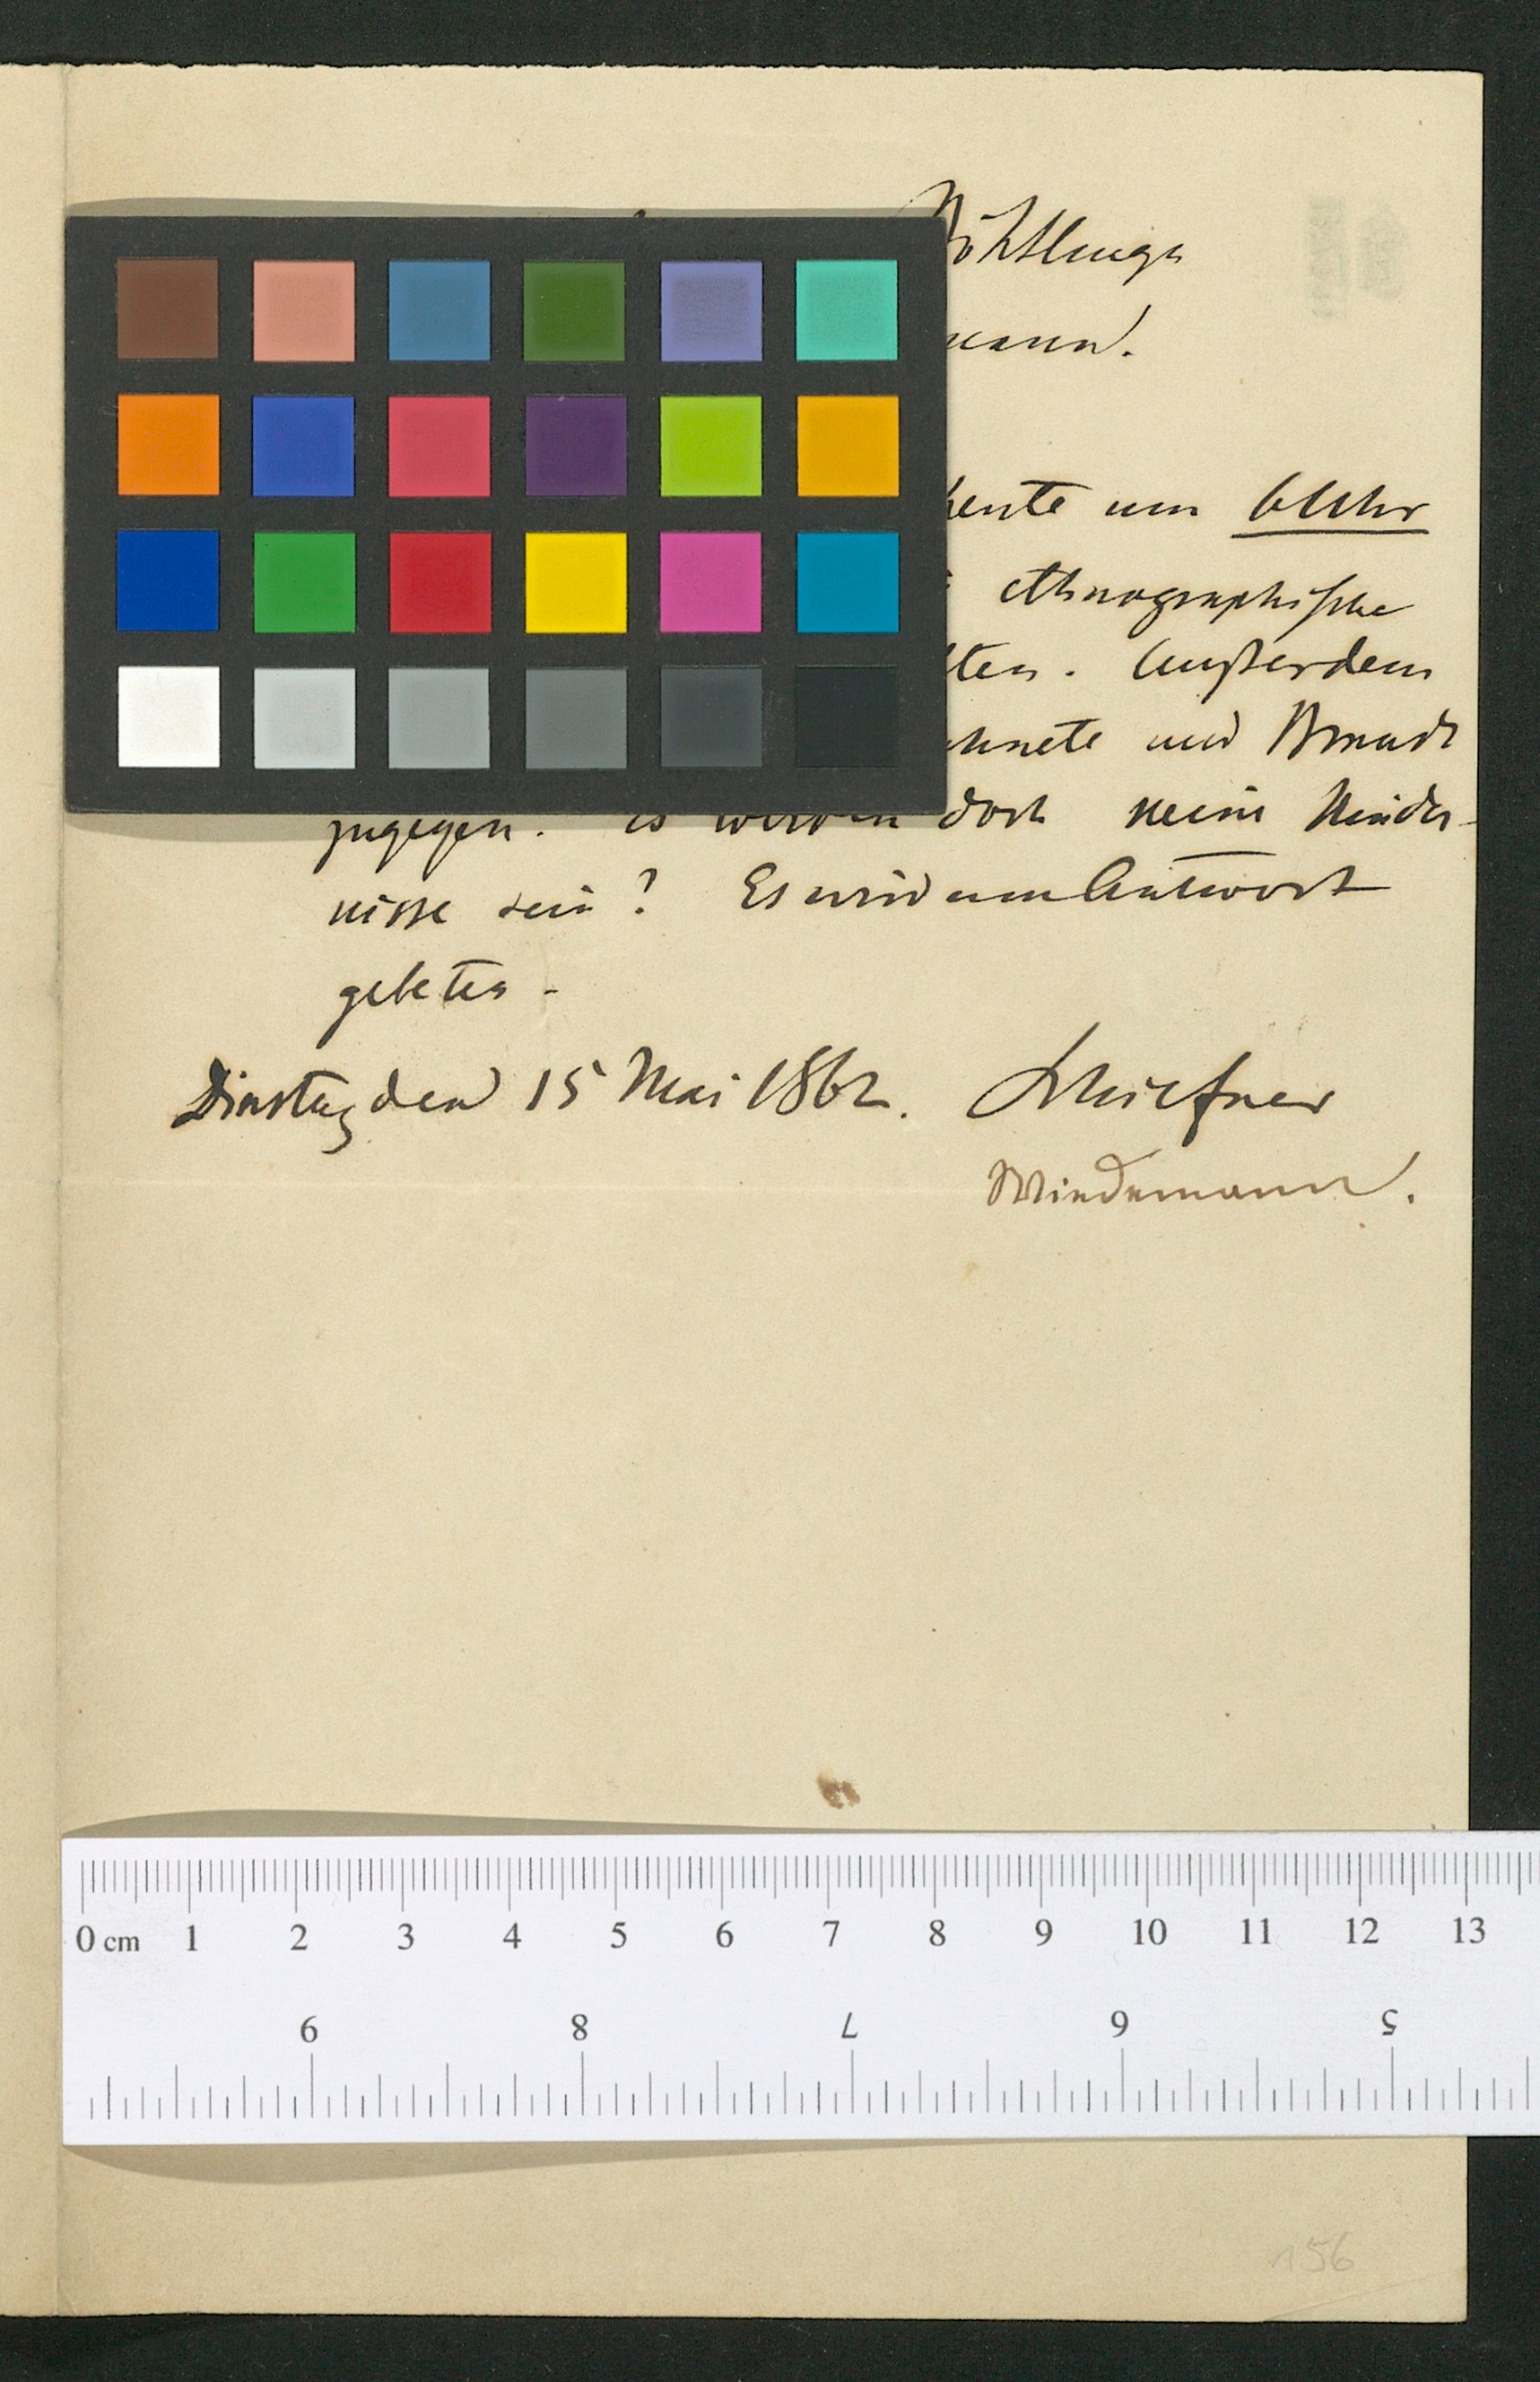 Böhtlings
mann.
heute um 6 Uhr
ethnographische
lten. Außerdem
chnete und Brandt
zugegen. Es werden doch keine Hinder-
nisse sein? Es wird um Antwort
gebeten -
Dinstag den 15 Mai 1862. Schiefner
Wiedemann.
0 cm 1 2 3 4 5 6 7 8 9 10 11 12 13
9 8 7 6 5
156